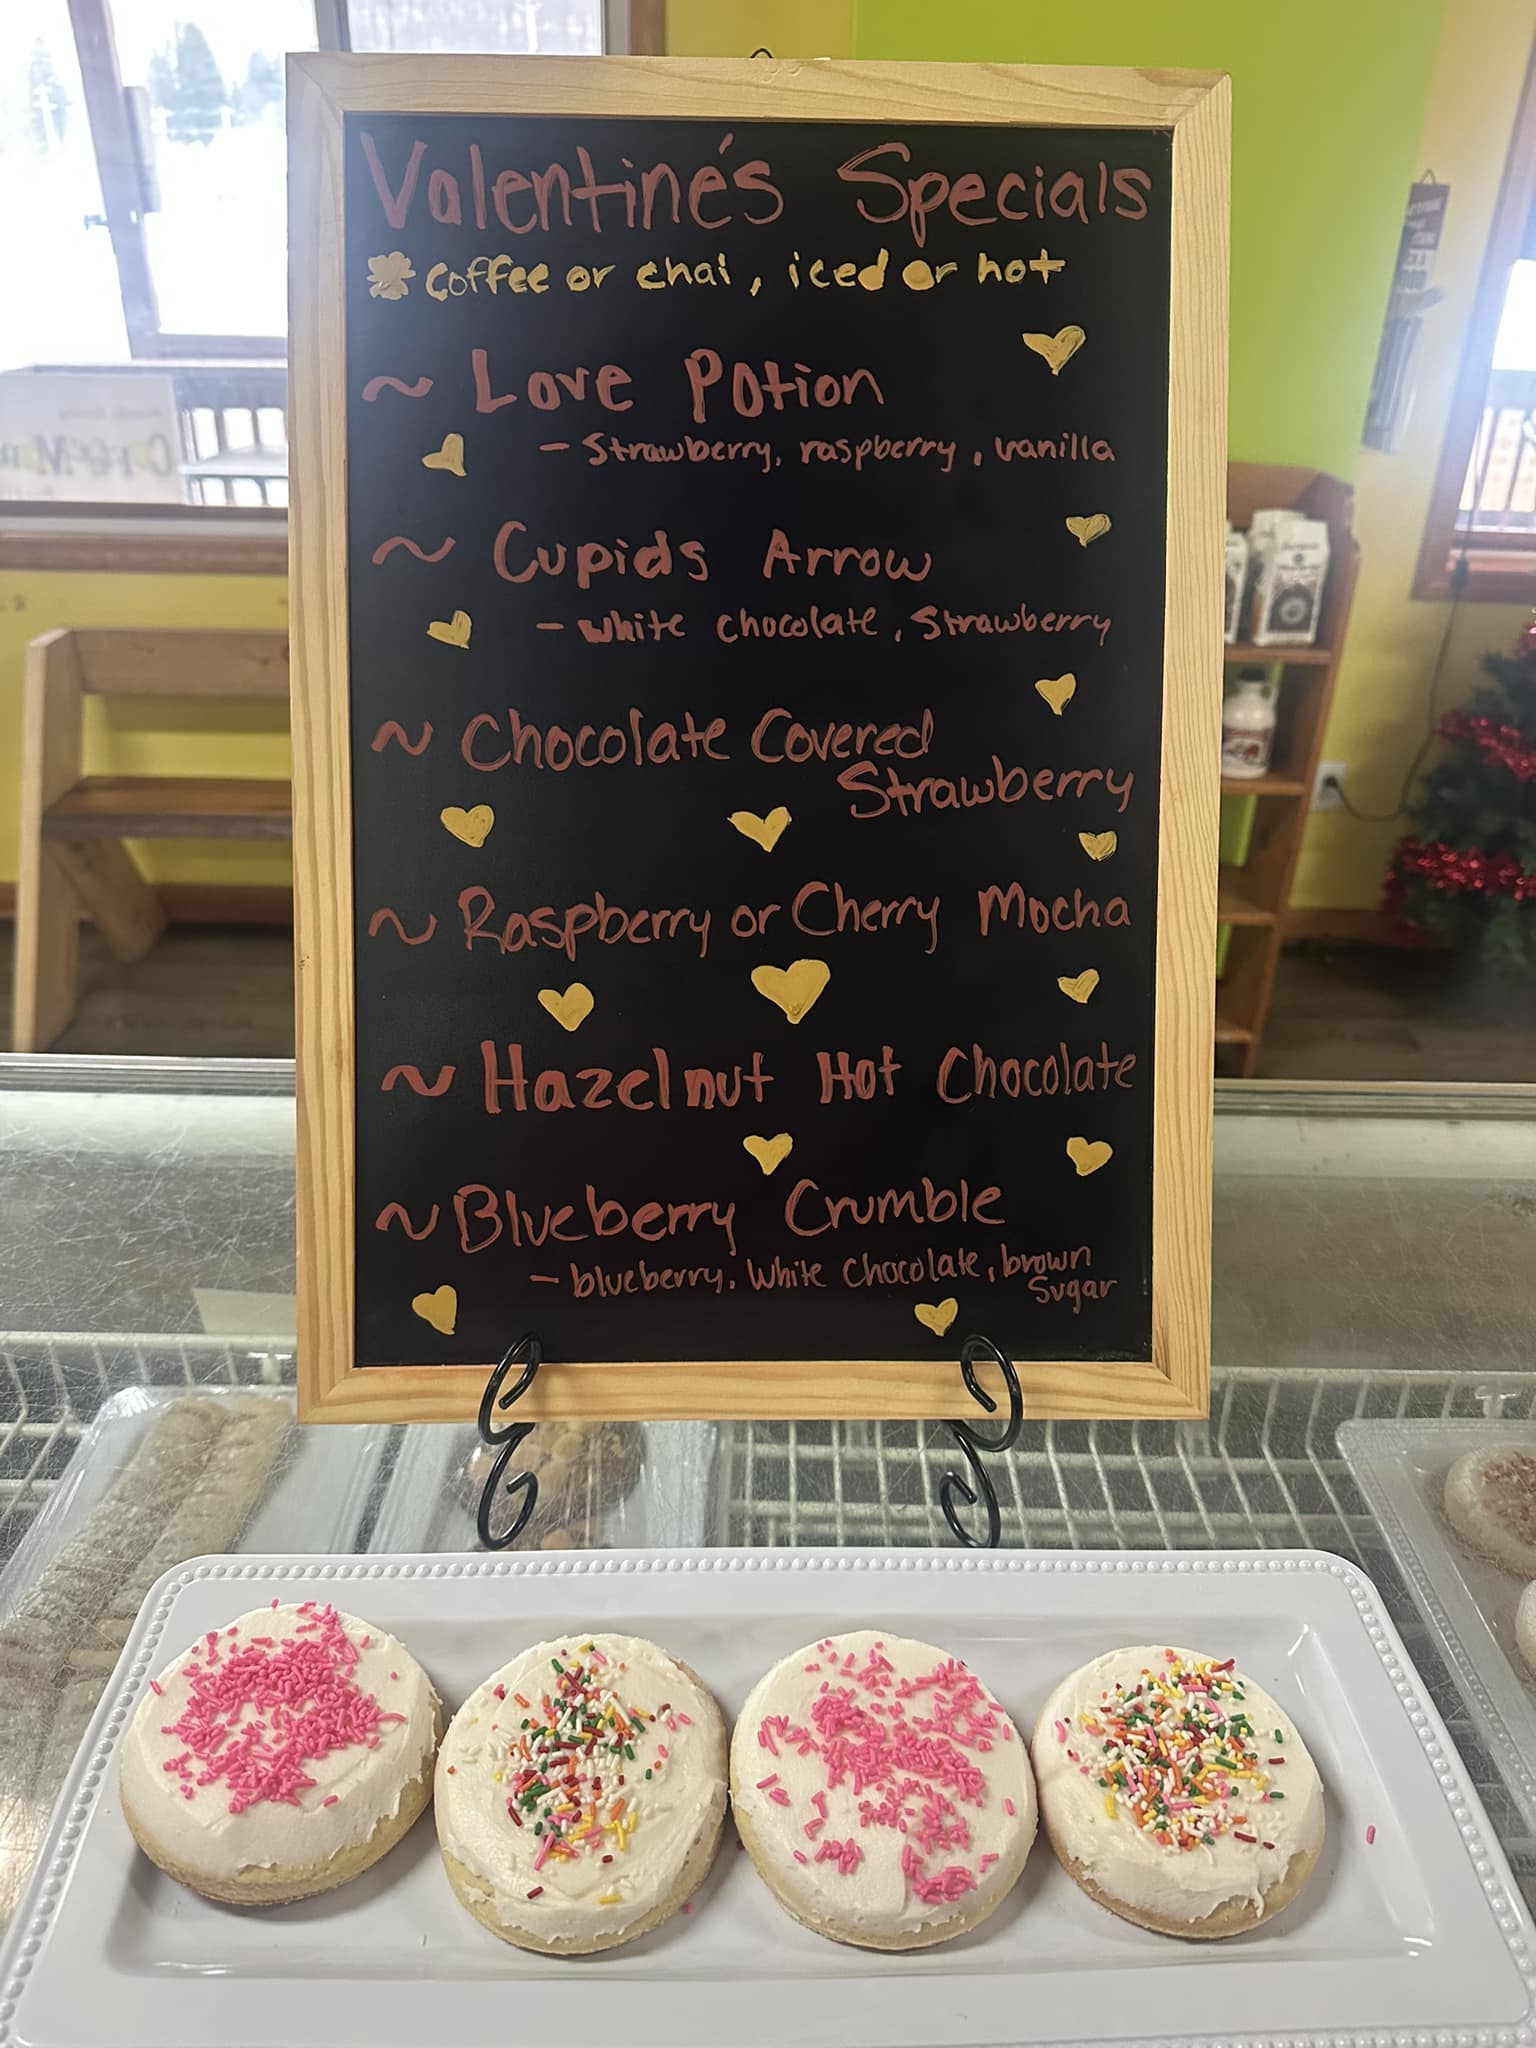 Valentine's Specials
coffee or chai, iced or hot
~ Love Potion
- Strawberry, raspberry, vanilla
~ Cupids Arrow
- white chocolate, Strawberry
~ Chocolate Covered
Strawberry
~ Raspberry or Cherry Mocha
~ Hazelnut Hot Chocolate
~ Blueberry Crumble
- blueberry, White Chocolate, brown
Sugar